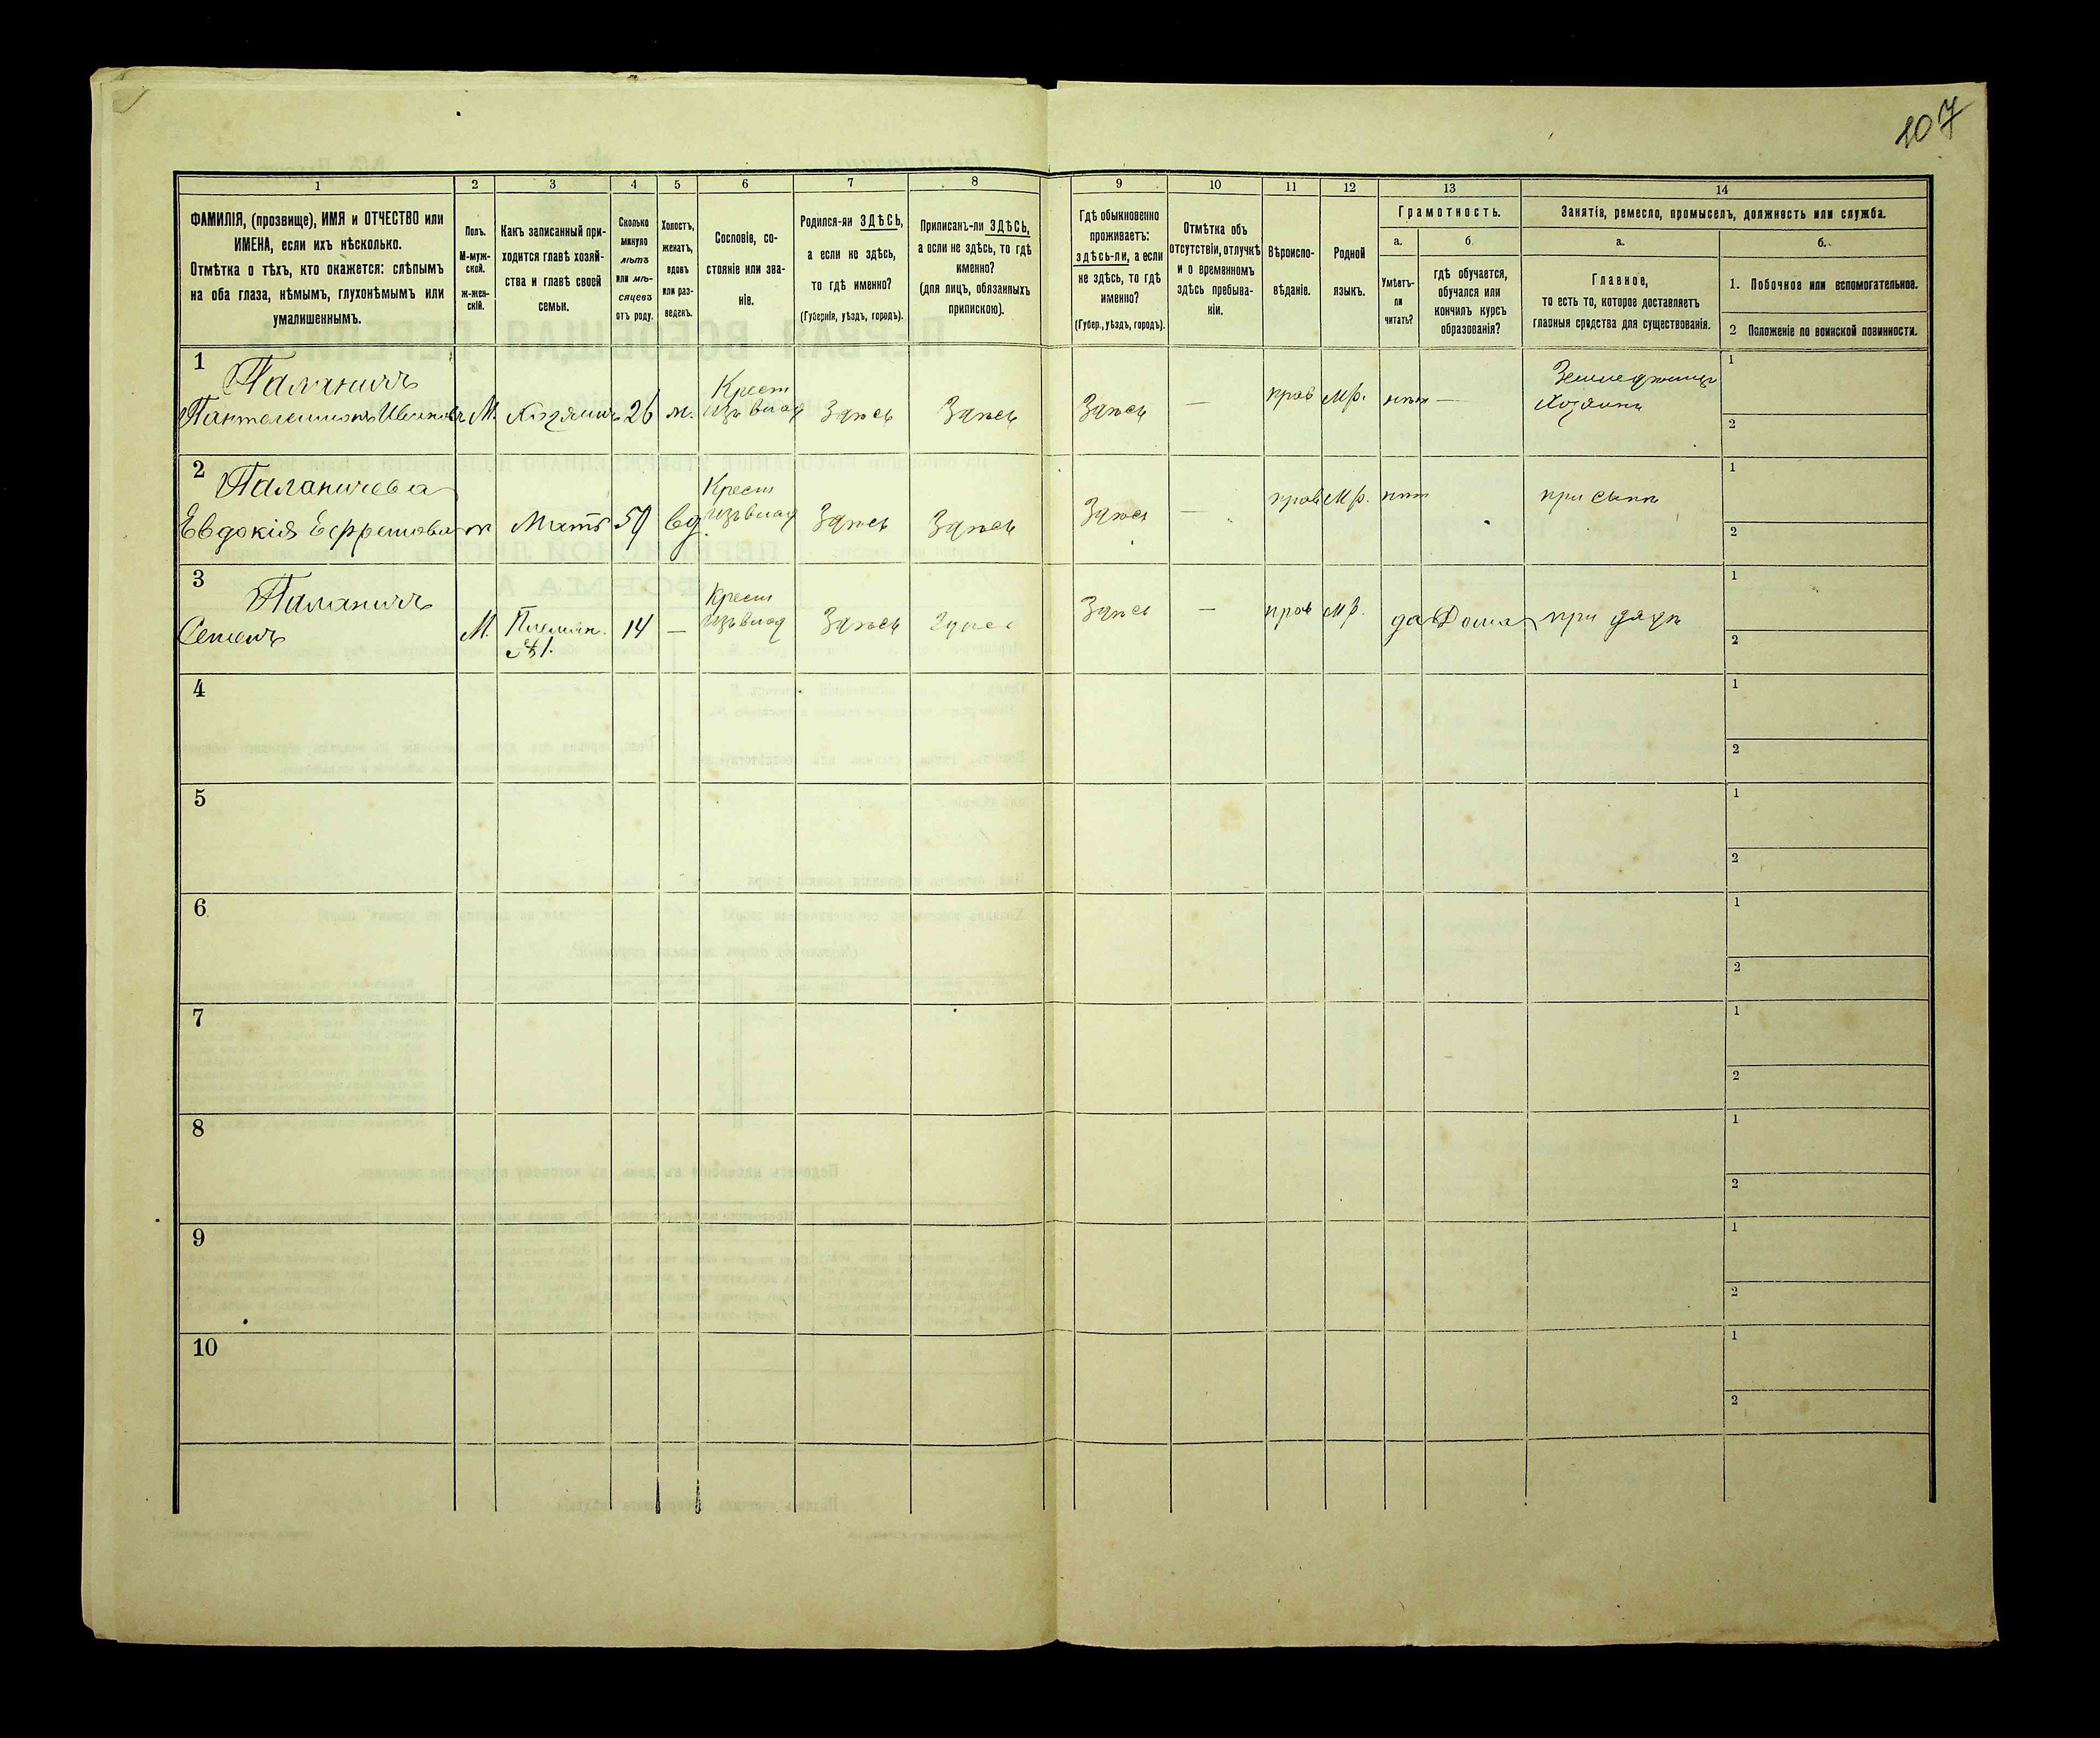 107
1
2
3
4
5
6
7
8
9
10
11
12
13
14
ФАМИЛІЯ, (прозвище), ИМЯ и ОТЧЕСТВО или
ИМЕНА, если ихъ нѣсколько.
Отмѣтка о тѣхъ, кто окажется: слѣпымъ
на оба глаза, нѣмымъ, глухонѣмымъ или
умалишеннымъ.
Полъ.
М-муж-
ской.
ж-жен-
скій.
Какъ записанный при-
ходится главѣ хозяй-
ства и главѣ своей
семьи.
Сколько
минуло
лѣтъ
или мѣ-
сяцевъ
отъ роду.
Холостъ,
женатъ,
вдовъ
или раз-
веденъ.
Сословіе, со-
стояніе или зва-
ніе.
Родился-ли ЗДѢСЬ,
а если не здѣсь,
то гдѣ именно?
(Губернія, уѣздъ, городъ).
Приписанъ-ли ЗДѢСЬ,
а если не здѣсь, то гдѣ
именно?
(для лицъ, обязанныхъ
припискою).
Гдѣ обыкновенно
проживаетъ:
здѣсь-ли, а если
не здѣсь, то гдѣ
именно?
(Губер., уѣздъ, городъ).
Отмѣтка объ
отсутствіи, отлучкѣ
и о временномъ
здѣсь пребыва-
ніи.
Вѣроиспо-
вѣданіе.
Родной
языкъ.
Грамотность.
а.
Умѣетъ-
ли
читать?
б
гдѣ обучается,
обучался или
кончилъ курсъ
образованія?
Занятіе, ремесло, промыселъ, должность или служба.
а.
Главное,
то есть то, которое доставляетъ
главныя средства для существованія.
б.
1. Побочное или вспомогательное.
2 Положеніе по воинской повинности.
1
Паланичъ
Пантелеимонъ Ивановъ М. Хозяинъ 26 ж. Крест
изъ влад Здѣсь Здѣсь Здѣсь — прав М.р. нѣтъ — Земледѣлецъ
Хозяинъ
1
2
2
Паланичева
Евдокія Ефремова ж Мать 59 вд. Крест
изъ влад Здѣсь Здѣсь Здѣсь — прав М.р. нѣтъ при сынѣ
1
2
3
Паланичъ
Семенъ М. Племян.
№1. 14 — Крест
изъ влад Здѣсь Здѣсь Здѣсь — прав М.р. да Дома при дядѣ
1
2
4
1
2
5
1
2
6
1
2
7
1
2
8
1
2
9
1
2
10
1
2